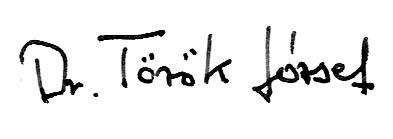 Dr. Török József